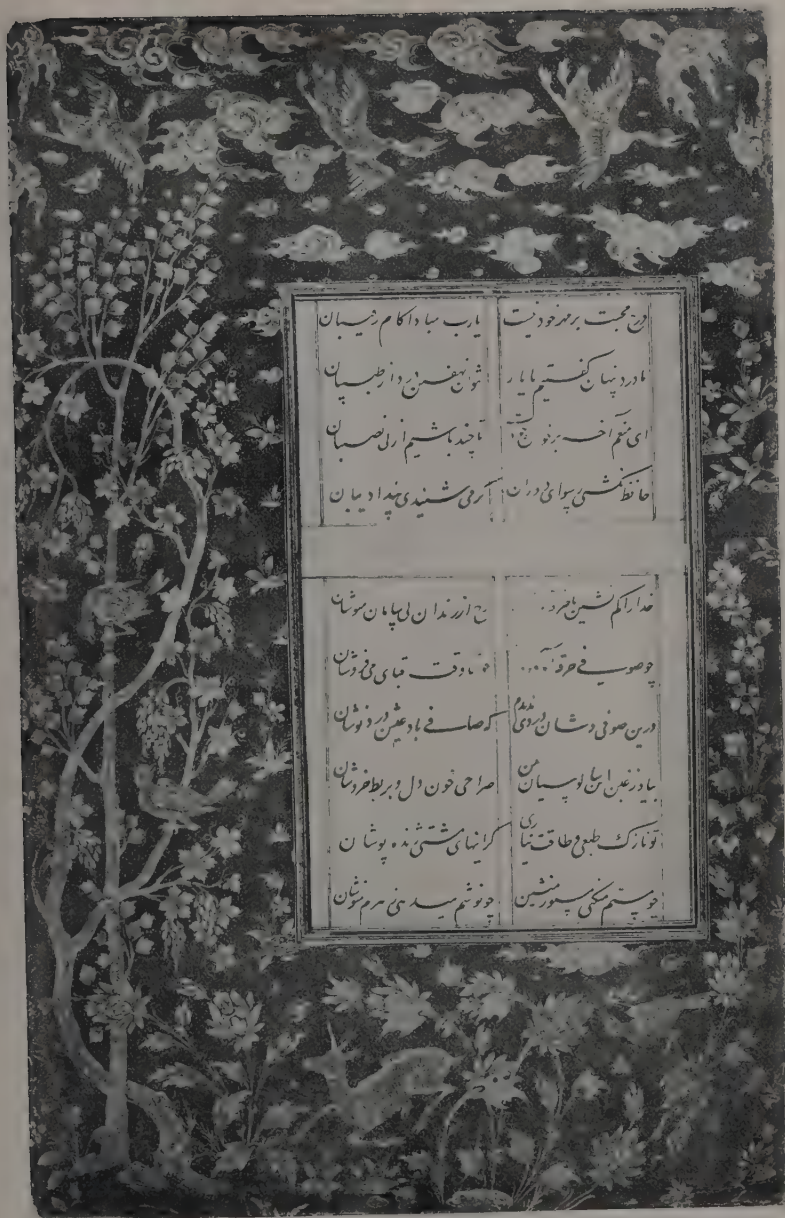 درج محبت بر مهر خود نیست یارب مبادا کام رقیبان
ما درد پنهان گفتیم با یار نتوان نهفتن درد از طبیبان
ای منعم آخر بر خوان تا چند باشیم از بی نصیبان
حافظ نگشتی رسوای دوران گر می شنیدی پند ادیبان
خدارا کم نشین با خرقه رخ از رندان بی سامان مپوشان
چو صوفی خرقه خوشا وقت قبای می فروشان
درین صوفی وشان دردی ندیدم که صافی باد عیش دردنوشان
بیا وز غبن این سالوسیان بین صراحی خون دل و بربط خروشان
تو نازک طبعی و طاقت نیاری گرانیهای مشتی ژنده پوشان
چو مستم میکنی مستور منشین چو نوشم میدهی زهرم منوشان